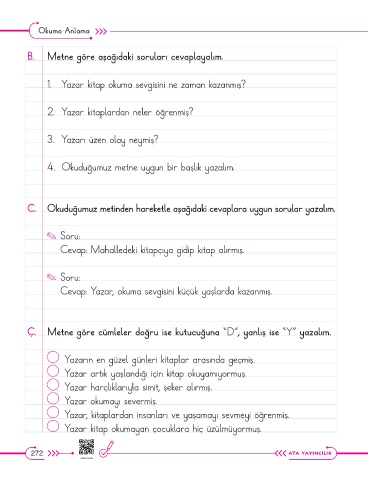 Okuma Anlama
B. Metne göre aşağıdaki soruları cevaplayalım.
1. Yazar kitap okuma sevgisini ne zaman kazanmış?
2. Yazar kitaplardan neler öğrenmiş?
3. Yazarı üzen olay neymiş?
4. Okuduğumuz metne uygun bir başlık yazalım.
C. Okuduğumuz metinden hareketle aşağıdaki cevaplara uygun sorular yazalım.
Soru:
Cevap: Mahalledeki kitapçıya gidip kitap alırmış.
Soru:
Cevap: Yazar, okuma sevgisini küçük yaşlarda kazanmış.
Ç. Metne göre cümleler doğru ise kutucuğuna "D", yanlış ise "Y" yazalım.
Yazarın en güzel günleri kitaplar arasında geçmiş.
Yazar artık yaşlandığı için kitap okuyamıyormuş.
Yazar harçlıklarıyla simit, şeker alırmış.
Yazar okumayı severmiş.
Yazar, kitaplardan insanları ve yaşamayı sevmeyi öğrenmiş.
Yazar kitap okumayan çocuklara hiç üzülmüyormuş.
272
ATA YAYINCILIK